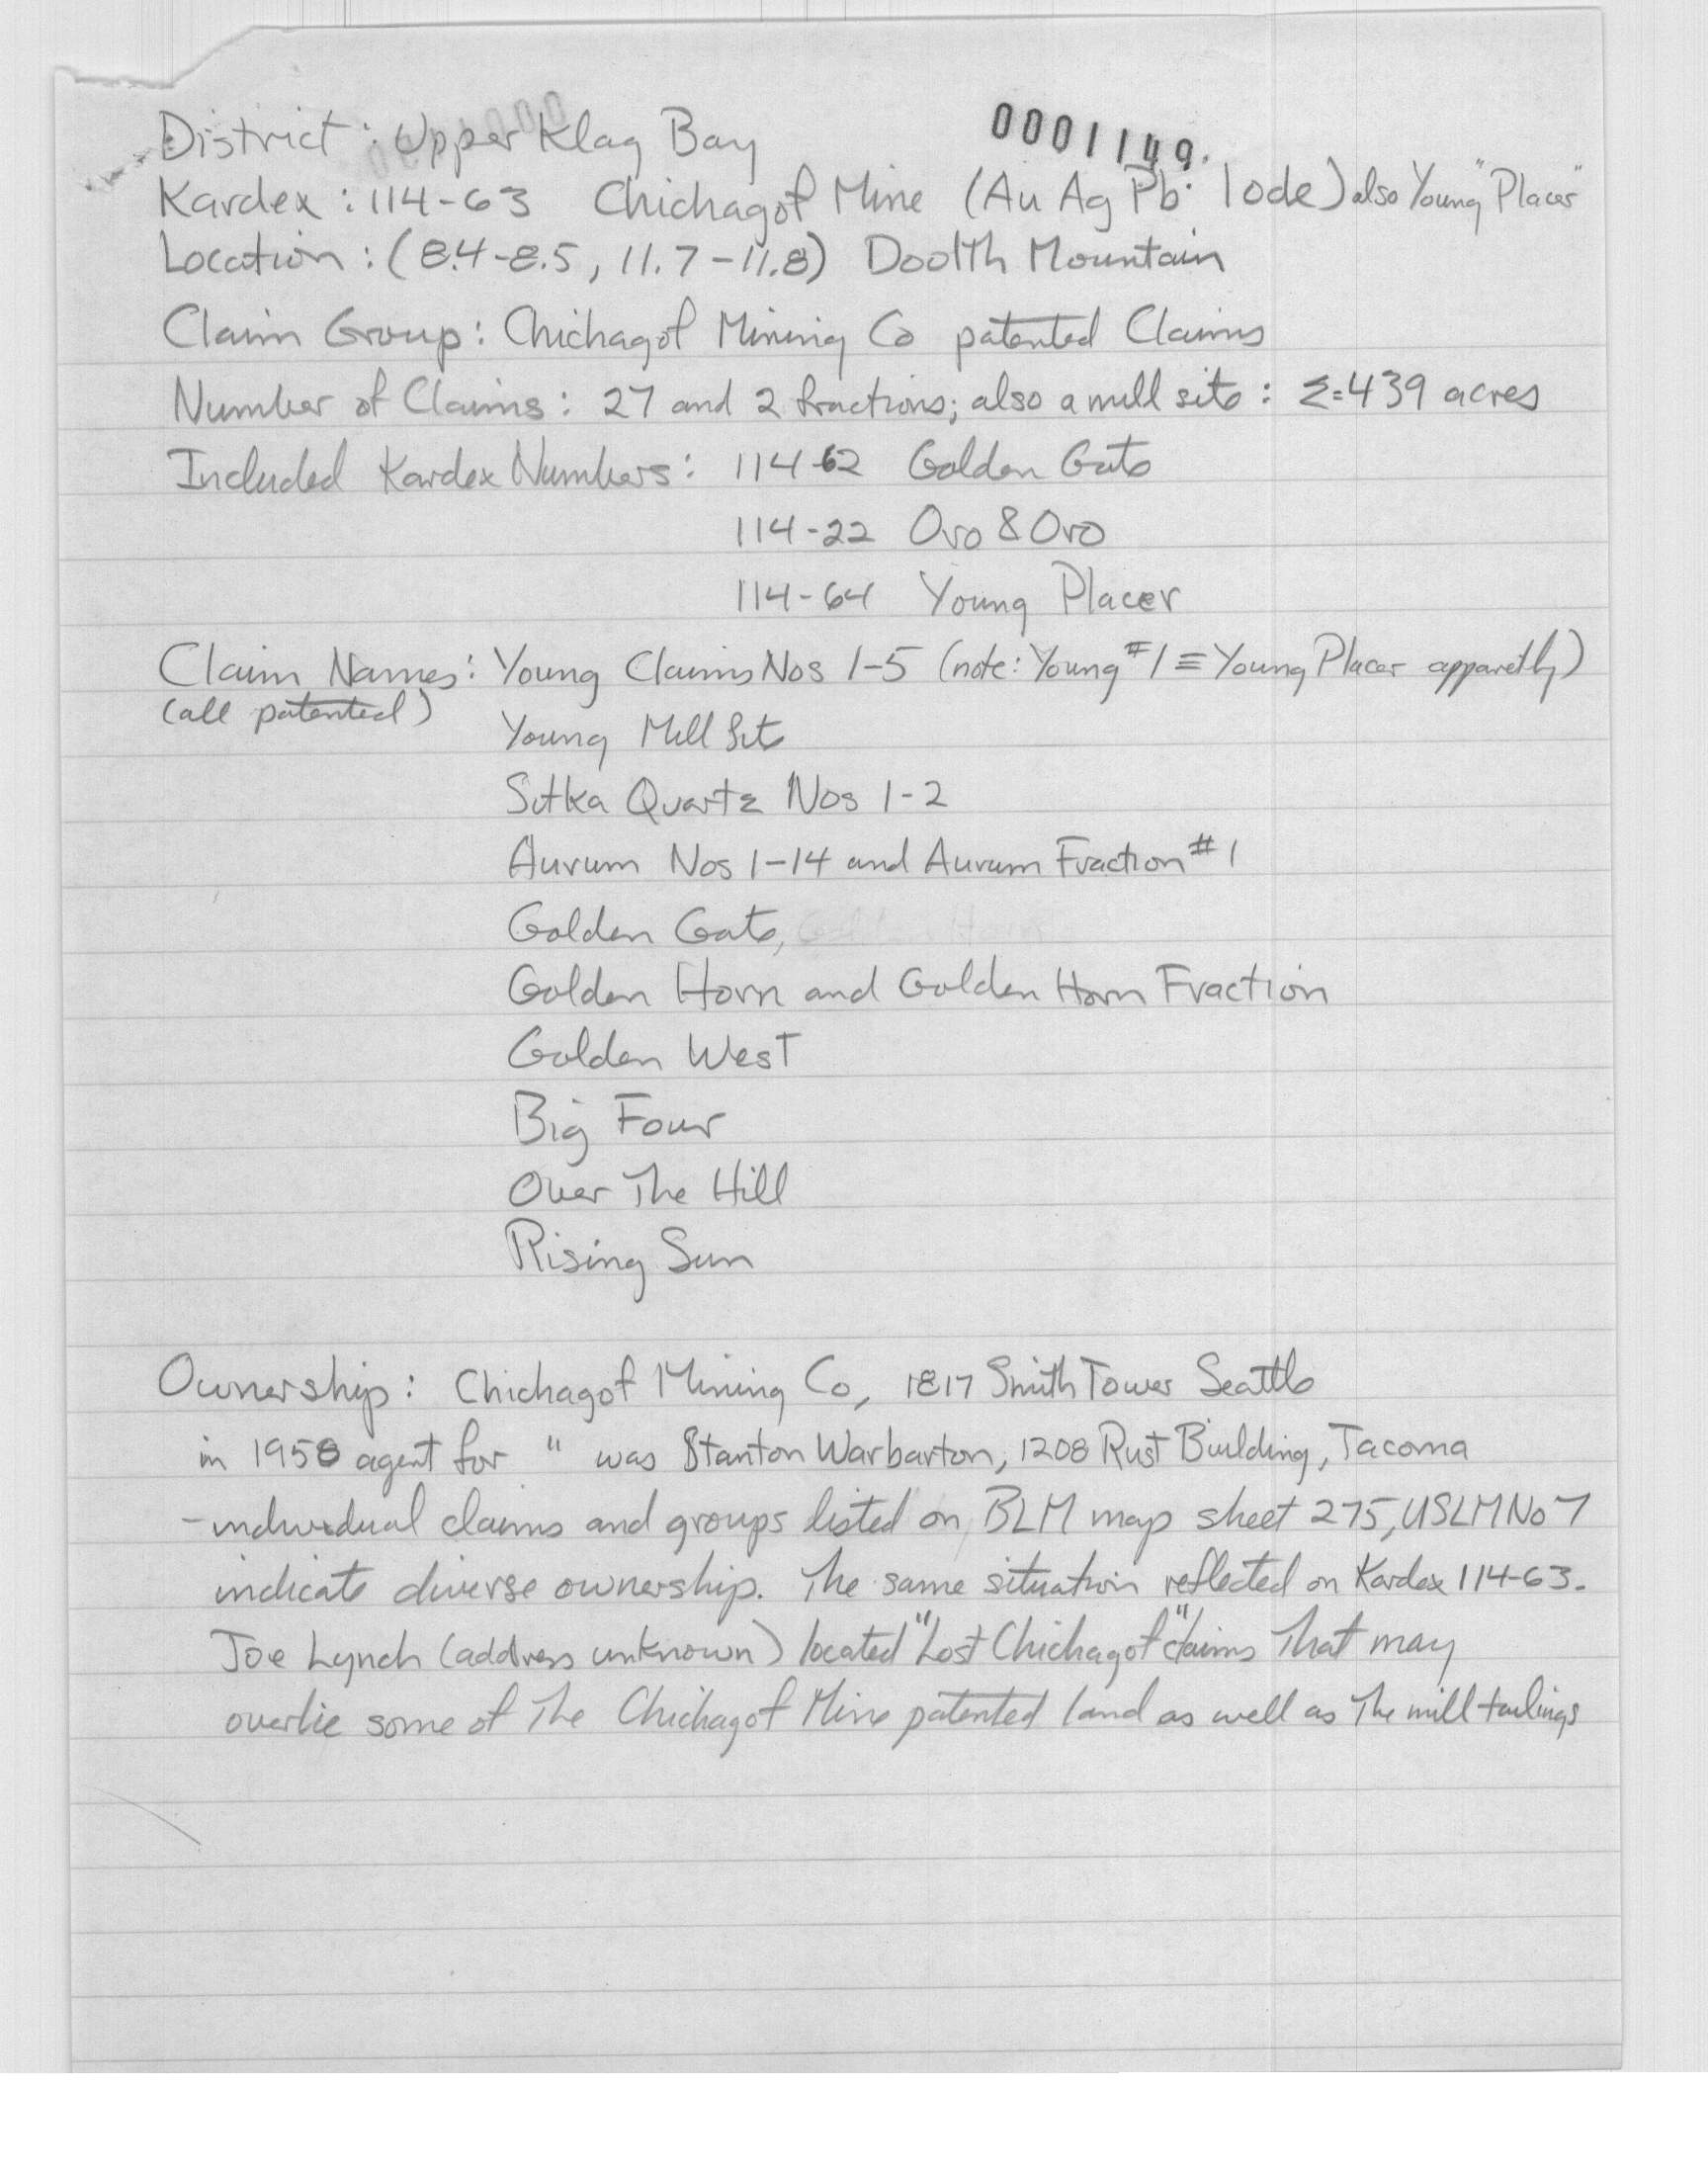 0001149.
District: Upper Klag Bay
Kardex: 114-63 Chichagof Mine (Au Ag Pb: lode) also Young "Placer"
Location: (8.4-8.5, 11.7-11.8) Doolth Mountain
Claim Group: Chichagof Mining Co patented Claims
Number of Claims: 27 and 2 fractions; also a mill site: Σ=439 acres
Included Kardex Numbers: 114-62 Golden Gate
114-22 Oro & Oro
114-64 Young Placer
Claim Names: Young Claims Nos 1-5 (note: Young #1 ≡ Young Placer apparetly)
(all patented)
Young Mill Site
Sitka Quartz Nos 1-2
Aurum Nos 1-14 and Aurum Fraction #1
Golden Gate,
Golden Horn and Golden Horn Fraction
Golden West
Big Four
Over The Hill
Rising Sun
Ownership: Chichagof Mining Co, 1817 Smith Tower Seattle
in 1958 agent for " was Stanton Warbarton, 1208 Rust Building, Tacoma
- individual claims and groups listed on BLM map sheet 275, USLM No 7
indicate diverse ownership. The same situation reflected on Kardex 114-63.
Joe Lynch (address unknown) located "Lost Chichagof" claims That may
overlie some of The Chichagof Mine patented land as well as The mill tailings